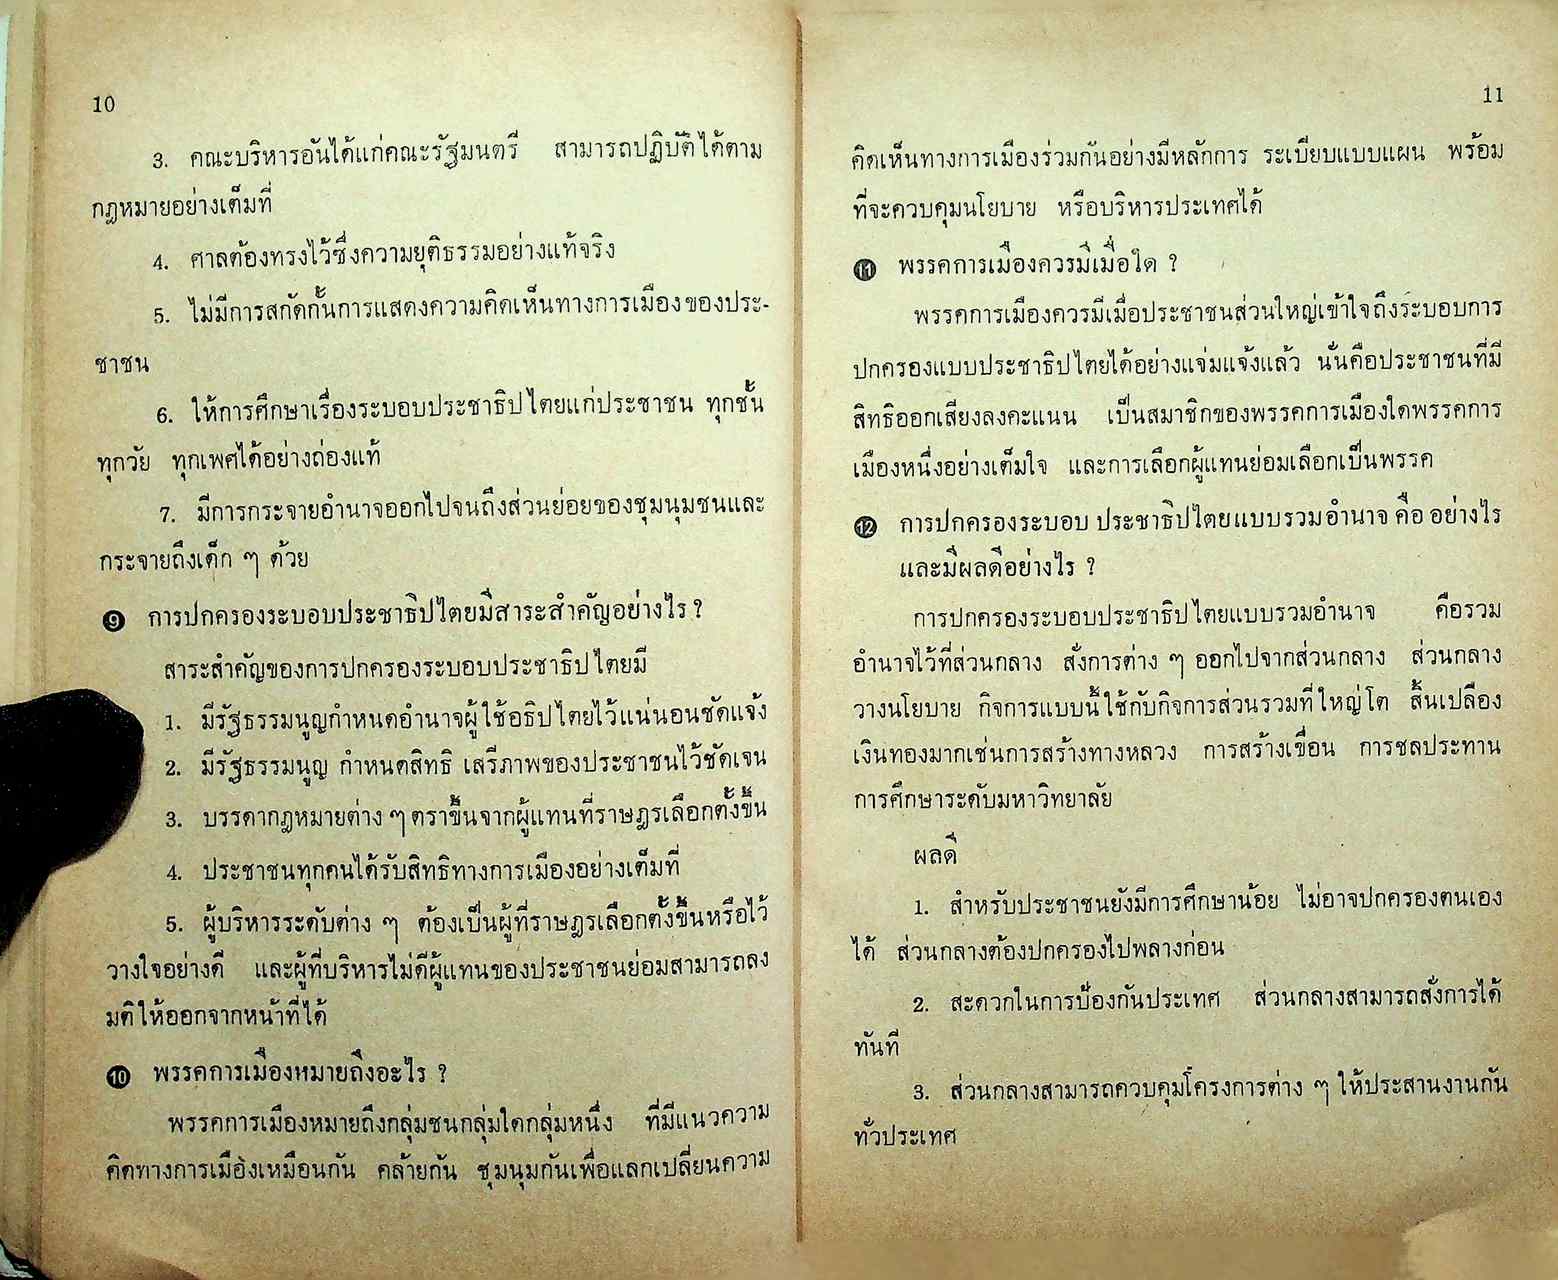 10
3. คณะบริหารอันได้แก่คณะรัฐมนตรี สามารถปฏิบัติได้ตาม
กฎหมายอย่างเต็มที่
4. ศาลต้องทรงไว้ซึ่งความยุติธรรมอย่างแท้จริง
5. ไม่มีการสกัดกั้นการแสดงความคิดเห็นทางการเมืองของประ-
ชาชน
6. ให้การศึกษาเรื่องระบอบประชาธิปไตยแก่ประชาชน ทุกชั้น
ทุกวัย ทุกเพศได้อย่างถ่องแท้
7. มีการกระจายอำนาจออกไปจนถึงส่วนย่อยของชุมนุมชนและ
กระจายถึงเด็ก ๆ ด้วย
9 การปกครองระบอบประชาธิปไตยมีสาระสำคัญอย่างไร ?
สาระสำคัญของการปกครองระบอบประชาธิปไตยมี
1. มีรัฐธรรมนูญกำหนดอำนาจผู้ใช้อธิปไตยไว้แน่นอนชัดแจ้ง
2. มีรัฐธรรมนูญ กำหนดสิทธิ เสรีภาพของประชาชนไว้ชัดเจน
3. บรรดากฎหมายต่าง ๆ ตราขึ้นจากผู้แทนที่ราษฎรเลือกตั้งขึ้น
4. ประชาชนทุกคนได้รับสิทธิทางการเมืองอย่างเต็มที่
5. ผู้บริหารระดับต่าง ๆ ต้องเป็นผู้ที่ราษฎรเลือกตั้งขึ้นหรือไว้
วางใจอย่างดี และผู้ที่บริหารไม่ดีผู้แทนของประชาชนย่อมสามารถลง
มติให้ออกจากหน้าที่ได้
10 พรรคการเมืองหมายถึงอะไร ?
พรรคการเมืองหมายถึงกลุ่มชนกลุ่มใดกลุ่มหนึ่ง ที่มีแนวความ
คิดทางการเมืองเหมือนกัน คล้ายกัน ชุมนุมกันเพื่อแลกเปลี่ยนความ
11
คิดเห็นทางการเมืองร่วมกันอย่างมีหลักการ ระเบียบแบบแผน พร้อม
ที่จะควบคุมนโยบาย หรือบริหารประเทศได้
11 พรรคการเมืองควรมีเมื่อใด ?
พรรคการเมืองควรมีเมื่อประชาชนส่วนใหญ่เข้าใจถึงระบอบการ
ปกครองแบบประชาธิปไตยได้อย่างแจ่มแจ้งแล้ว นั่นคือประชาชนที่มี
สิทธิออกเสียงลงคะแนน เป็นสมาชิกของพรรคการเมืองใดพรรคการ
เมืองหนึ่งอย่างเต็มใจ และการเลือกผู้แทนย่อมเลือกเป็นพรรค
12 การปกครองระบอบ ประชาธิปไตยแบบรวมอำนาจ คือ อย่างไร
และมีผลดีอย่างไร ?
การปกครองระบอบประชาธิปไตยแบบรวมอำนาจ คือรวม
อำนาจไว้ที่ส่วนกลาง สั่งการต่าง ๆ ออกไปจากส่วนกลาง ส่วนกลาง
วางนโยบาย กิจการแบบนี้ใช้กับกิจการส่วนรวมที่ใหญ่โต สิ้นเปลือง
เงินทองมากเช่นการสร้างทางหลวง การสร้างเขื่อน การชลประทาน
การศึกษาระดับมหาวิทยาลัย
ผลดี
1. สำหรับประชาชนยังมีการศึกษาน้อย ไม่อาจปกครองตนเอง
ได้ ส่วนกลางต้องปกครองไปพลางก่อน
2. สะดวกในการป้องกันประเทศ ส่วนกลางสามารถสั่งการได้
ทันที
3. ส่วนกลางสามารถควบคุมโครงการต่าง ๆ ให้ประสานงานกัน
ทั่วประเทศ